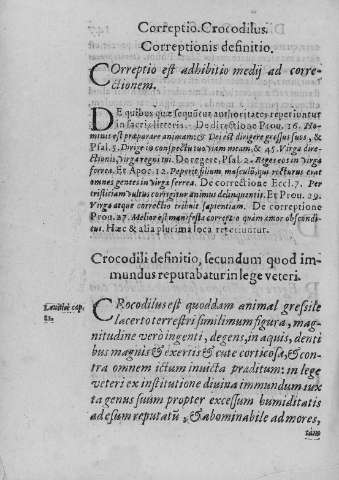 Correptio. Crocodilus.
Correptionis definitio.
COrreptio est adhibitio medij ad corre-
ctionem.
DE quibus quæ sequũtur authoritates reperiuntur
in sacris litteris. De directione Prou. 16. Ho-
minis est præparare animam; & Dei est dirigere gressus suos, &
Psal. 5. Dirige in conspectu tuo viam meam, & 45. Virga dire-
ctionis, virga regni tui. De regere, Psal. 2. Reges eos in virga
ferrea. Et Apoc. 12. Peperit filium masculũ, qui recturus erat
omnes gentes in virga ferrea. De correctione Eccl. 7. Per
tristitiam vultus corrigitur animus delinquentis. Et Prou. 29.
Virga atque correctio tribuit sapientiam. De correptione
Prou. 27. Melior est manifesta correptio quàm amor abscondi-
tus. Hæc & alia plurima loca reperiuntur.
Crocodili definitio, secundum quod im-
mundus reputabatur in lege veteri.
Leuitici cap.
11.
CRocodilus est quoddam animal gressile
lacerto terrestri simillimum figura, mag-
nitudine verò ingenti, degens, in aquis, denti
bus magnis & exertis & cute corticosa, & con-
tra omnem ictum inuicta præditum: in lege
veteri ex institutione diuina immundum iux
ta genus suum propter excessum humiditatis
ad esum reputatũ, & abominabile ad mores,